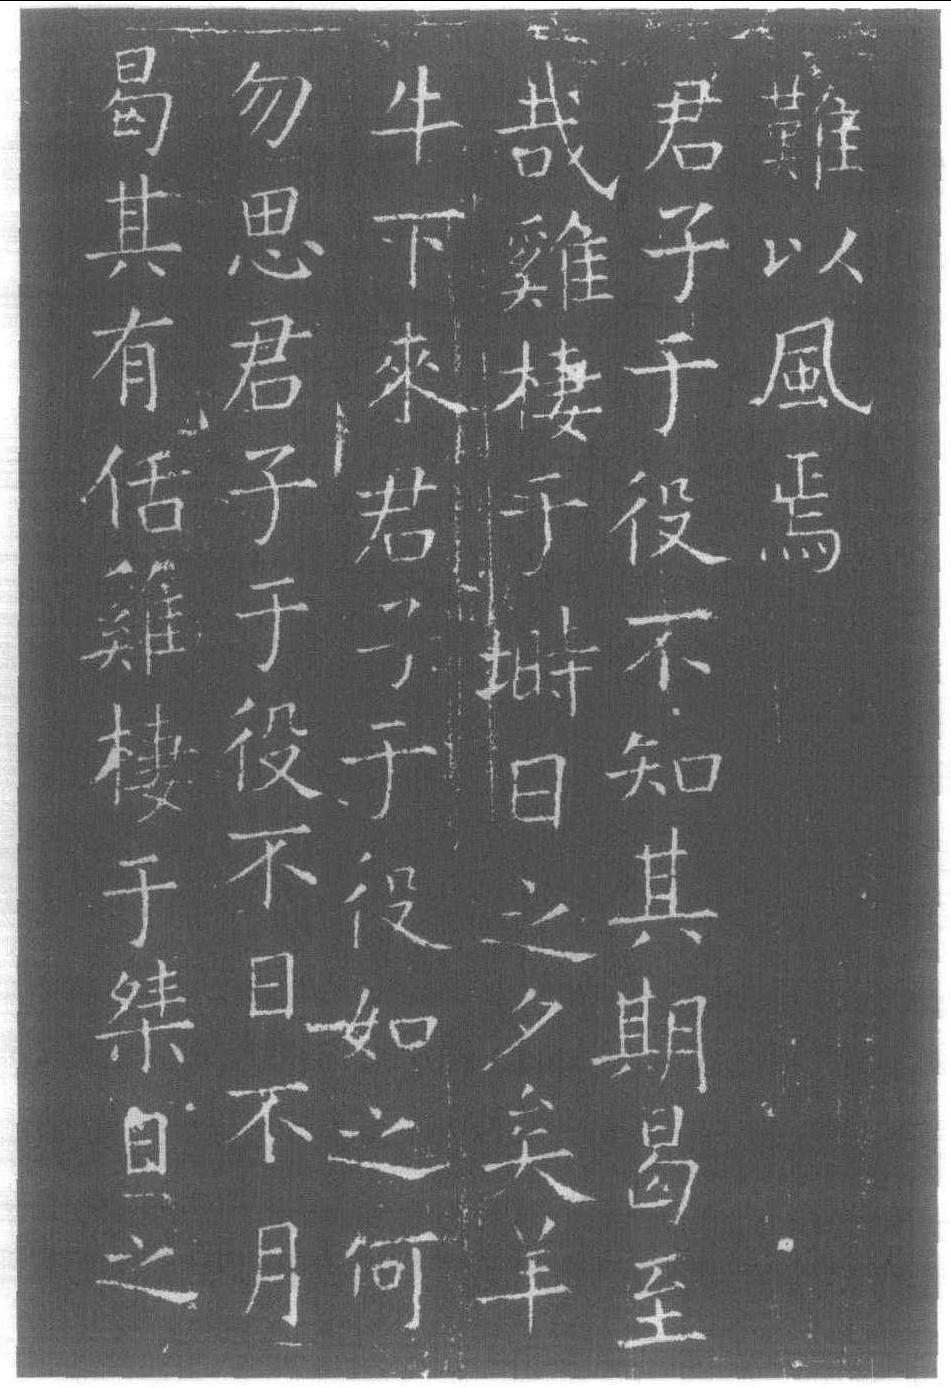 難以風焉
君子于役不知其期曷至
哉雞棲于塒日之夕矣羊
牛下來君子于役如之何
勿思君子于役不日不月
曷其有佸雞棲于桀日之